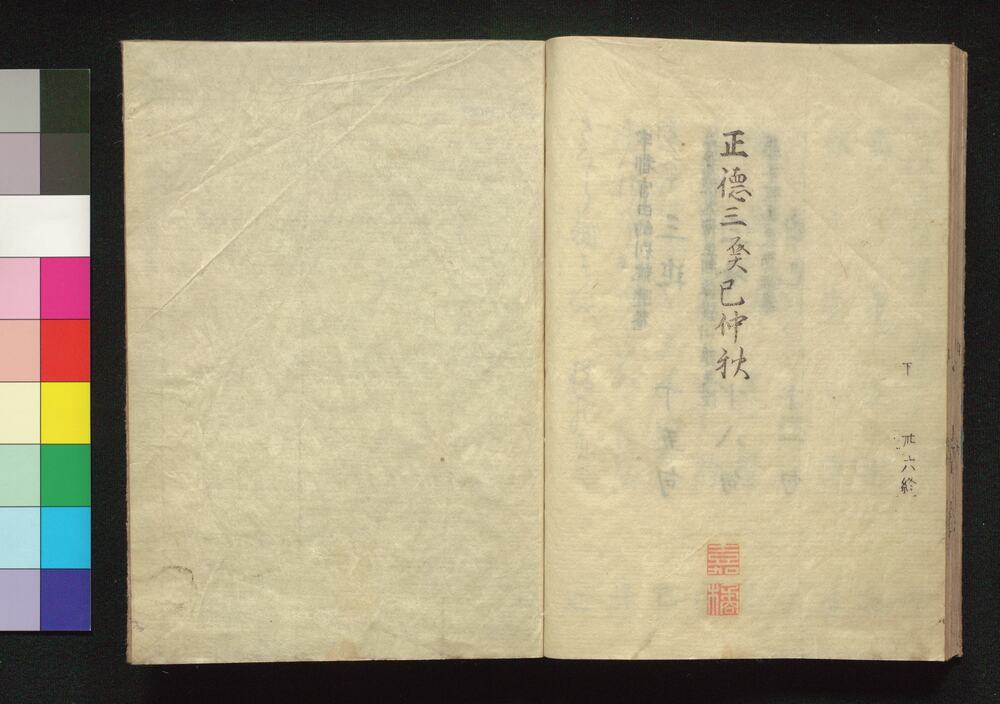 下 卅六終
正德三癸巳仲秋
嘉
橘